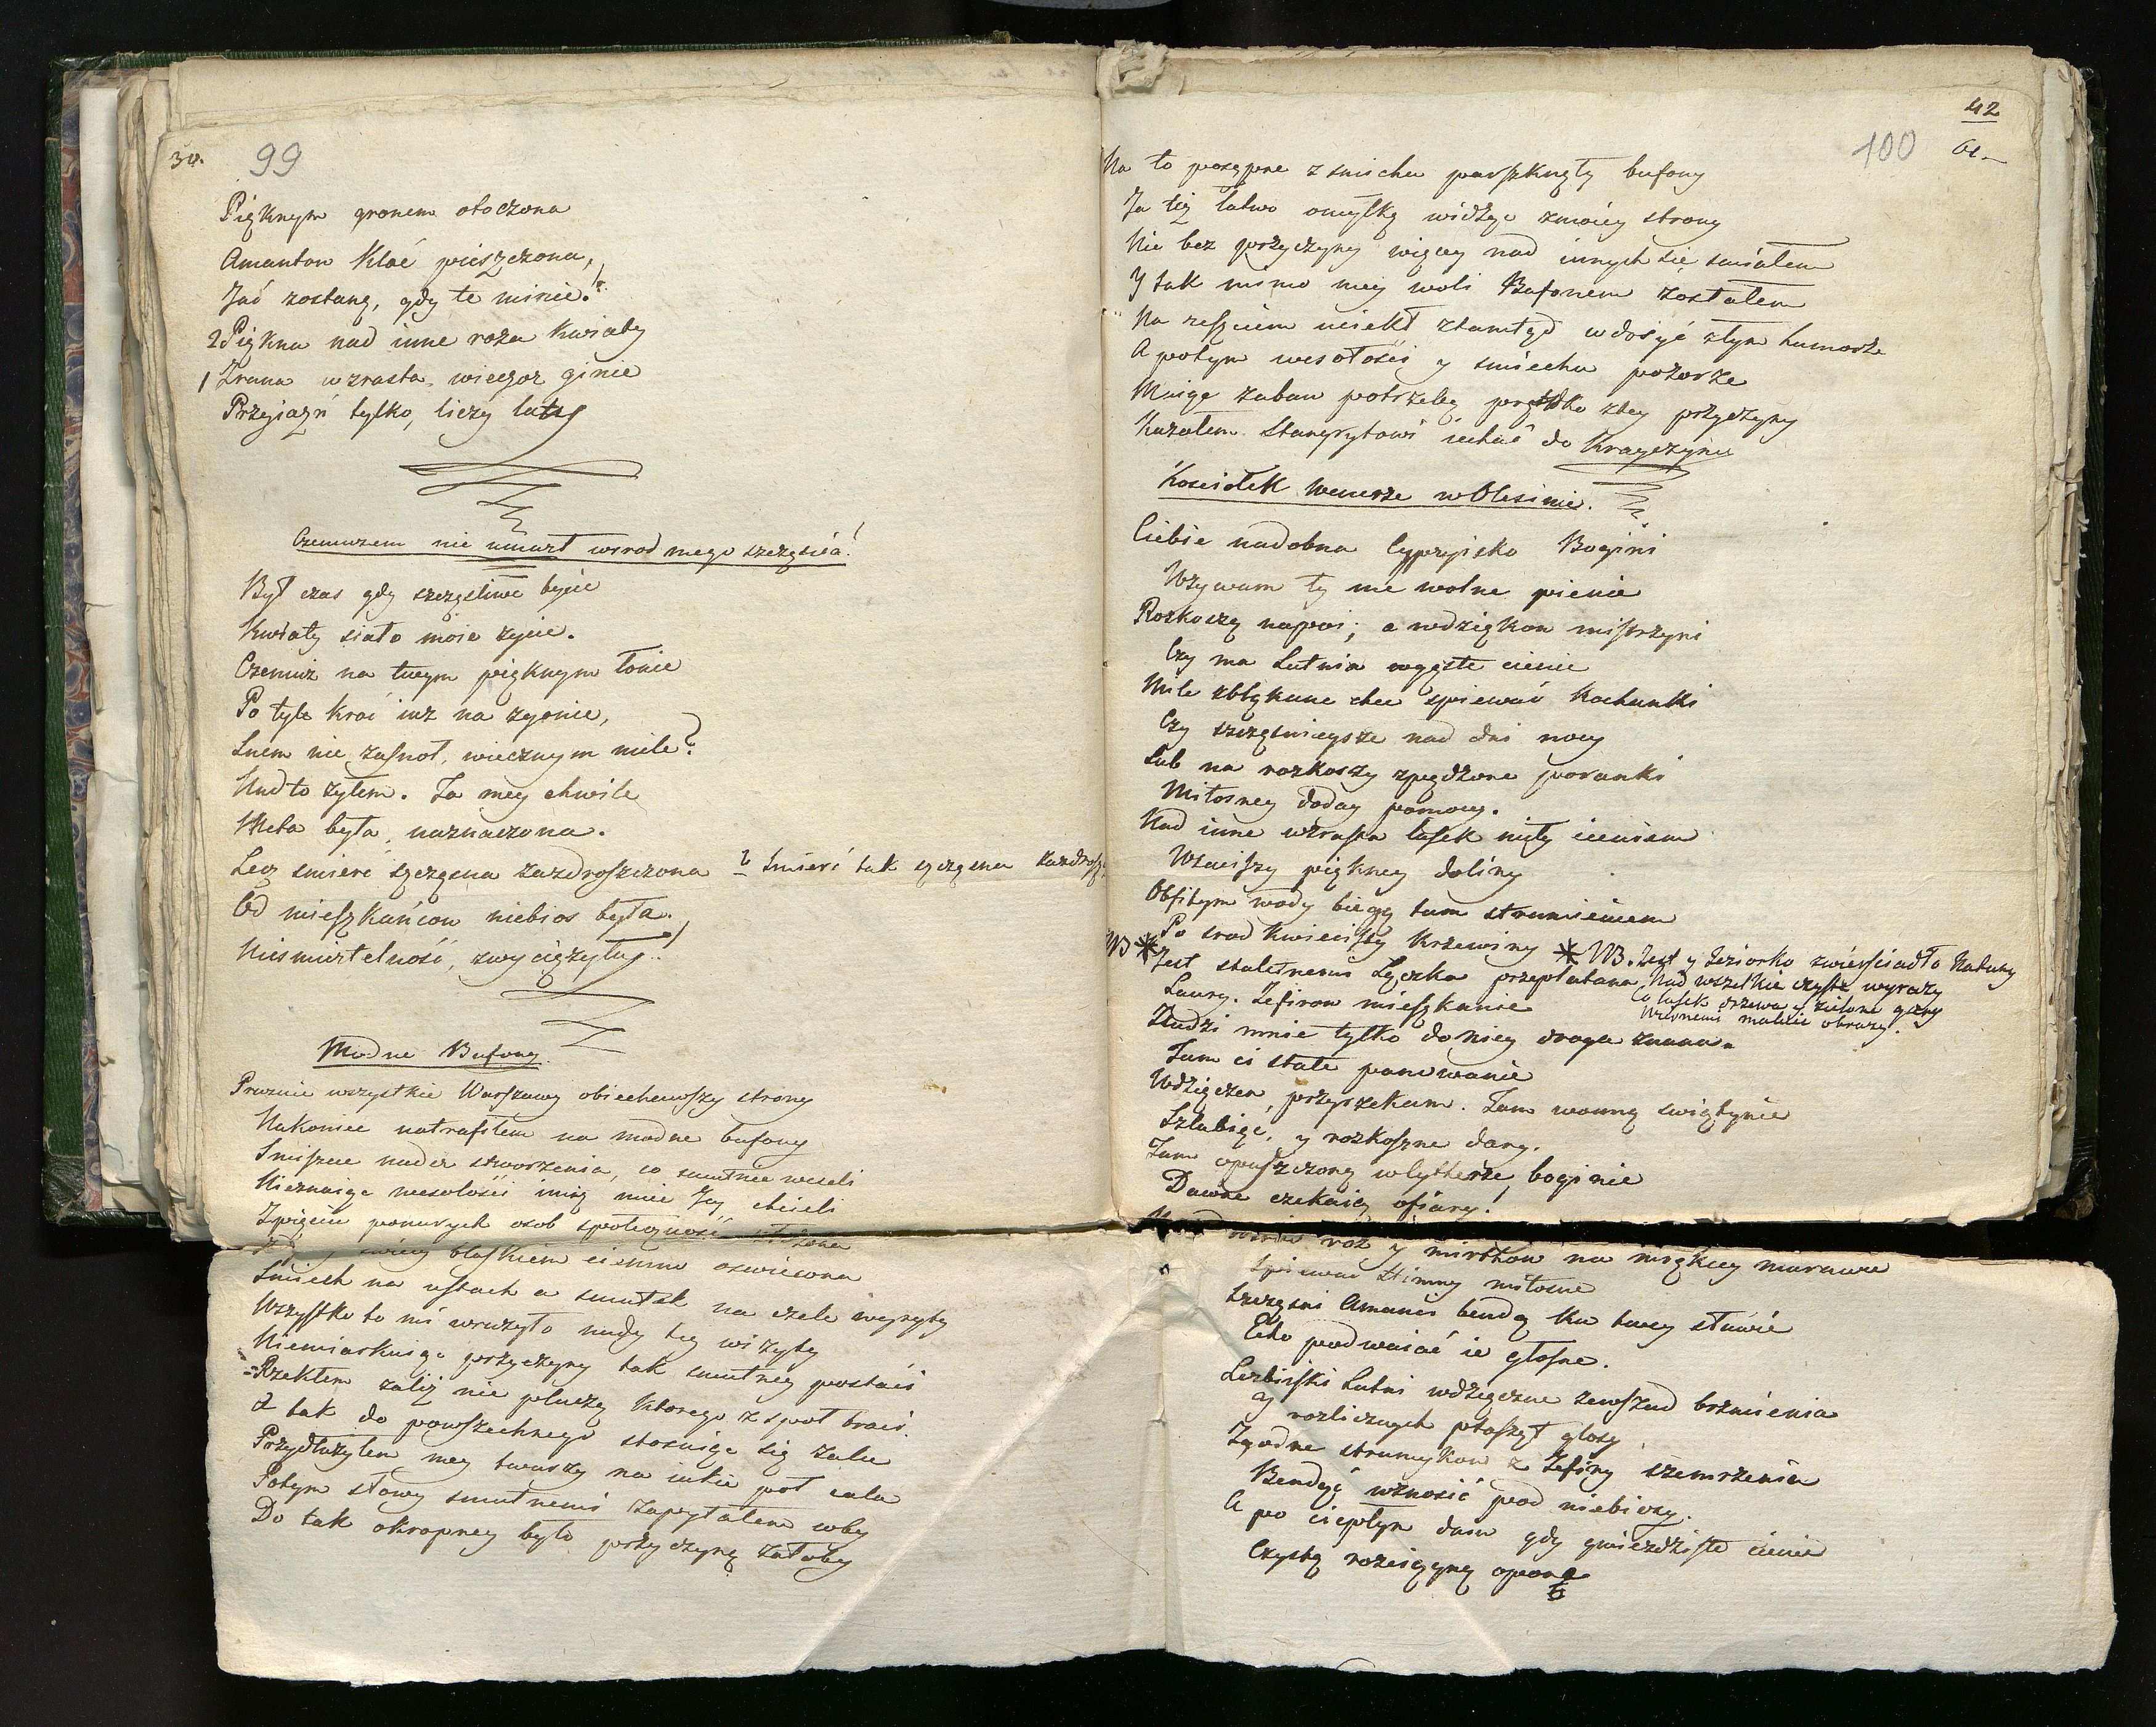 30. 99
Pięknym gronem otoczona
Amantow Kloé pieszczona,
Jać zostanę, gdy te minie!
2 Piękna nad inne roża kwiaty
1 Zrana wzrasta, wieczor ginie
Przyiaźń tylko, liczy laty
Czemuzem nie umarł wsrod mego szczęścia!
Był czas gdy szczęsliwe bycie
Kwiaty siało moie zycie.
Czemuż na twym pięknym łonie
Po tyle kroć iuż na zgonie,
Snem nie zasnoł, wiecznym mile?
Nadto zyłem. Ta mey chwile
Meta była, naznaczona.
Lecz smierć szczęsna zazdroszczona 2 Smierć tak szczęsna
Od mieszkańcow niebios była.
Niesmiertelność, zwyciężyła!
Modne Bufony.
Proznie wszystkie Warszawy obiechawszy strony
Nakoniec natrafiłem na modne bufony
Smiszne nader stworzenia, co smutnie weseli
Nieznaiąc wesołości imię mieć Jey chcieli
Zpięciu ponurych osob społeczność złożona
swiecy blaskiem ciemno oswiecona
Smiech na ustach a smutek na czele wyryty
Wszystko to mi wrużyło nudy tey wizyty
Niemiarkuiąc przyczyny tak smutney postaci
Rzekłem zaliż nie płaczą ktorego z społ braci.
A tak do powszechnego stosuiąc się żalu
Przydłużyłem mey twarzy na iakie poł cala
Potym słowy smutnemi zapytałem coby
Do tak okropney było przyczyną żałoby
42
100 Oe.
Na to posępne z smiechu parszknęły bufony
Ja też łatwo omyłkę widząc zmoiey strony
Nie bez przyczyny więcey nad innych się smiałem
Y tak mimo mey woli Bufonem zostałem
Na reszciem uciekł ztamtąd w dosyć złym humorze
A potym wesołości y smiechu pozorze
Maiąc zabaw potrzebę prędko zley przyczyny
Kazałem Stangrytowi iechać do Krayczyny
Kosciołek Wenerze w Olesinie.
Ciebie nadobna Cypryisko Bogini
Wzywam ty me wolne pienie
Rozkoszą napoi; a wdziękow mistrzyni
Czy ma Lutnia wgęste cienie
Mile zbłąkane chce spiewać Kochanki
Czy szczęsnieysze nad dni nocy
Lub na rozkoszy zpędzone poranki
Miłosney doday pomocy.
Nad inne wzrasta lasek miły cieniem
Wzaciszy piękney doliny
Obfitym wody biegą tam strumieniem
Po srod kwiecisty krzewiny ⁎ NB. Jest y Jeziorko zwierściadło Natury
NB ⁎ Jest staletnemi Łączka przeplatana Nad wszelkie czyste wyrazy
Laury. Zefirow mieszkanie Co lasek drzewa y zielone gory
Wiernemi maluie obrazy.
Zludzi mnie tylko do niey droga znana.
Tam ci stałe panowanie
Wdzięczen, przyrzekam. Tam wonną swiątynie
Szlubię, y rozkoszne dary.
Tam opuszczoną w Cytherze, boginie
Dawne czekaią ofiary!
roż y mirtkow na miękiey murawie
Spiewać Himny miłosne
Szczęsni Amanci bendą ku twey sławie
Echo podwaiać ie głosne.
Lezbiyski Lutni wdzięczne zewszad brzmienia
y rozlicznych ptaszyt głosy
Zgodne strumykow z Zefiry szemrzenia
Bendąć wznosić pod niebiosy.
A po ciepłym dniu gdy gwiezdziste cienie
Czystą rozciągną oponę